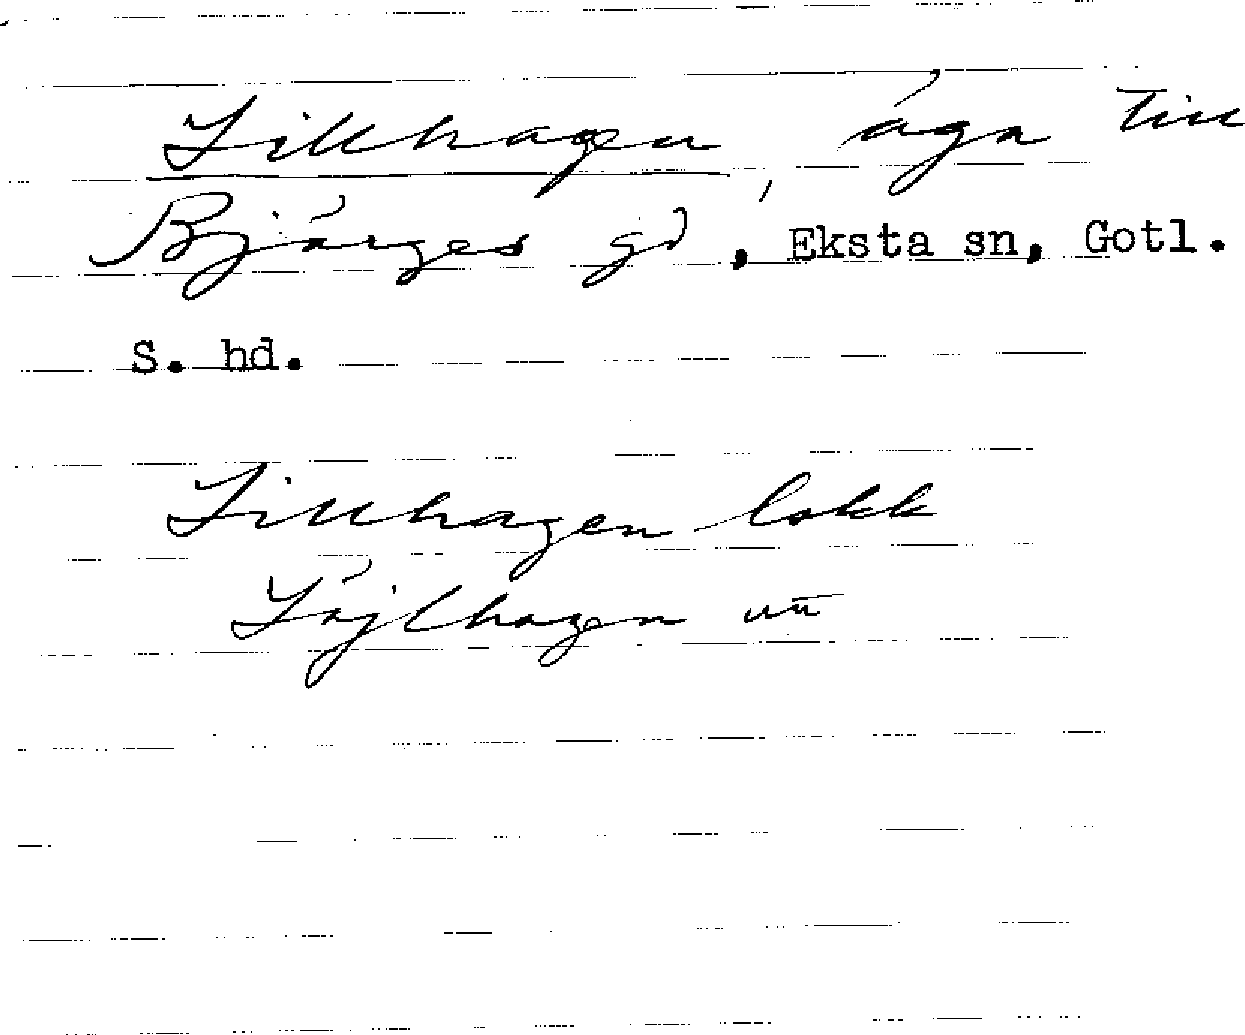 Lillhagen, äga till
Bjärges gd, Eksta sn, Gotl.
S. hd.
Lillhagen lokk
Läjlhagen